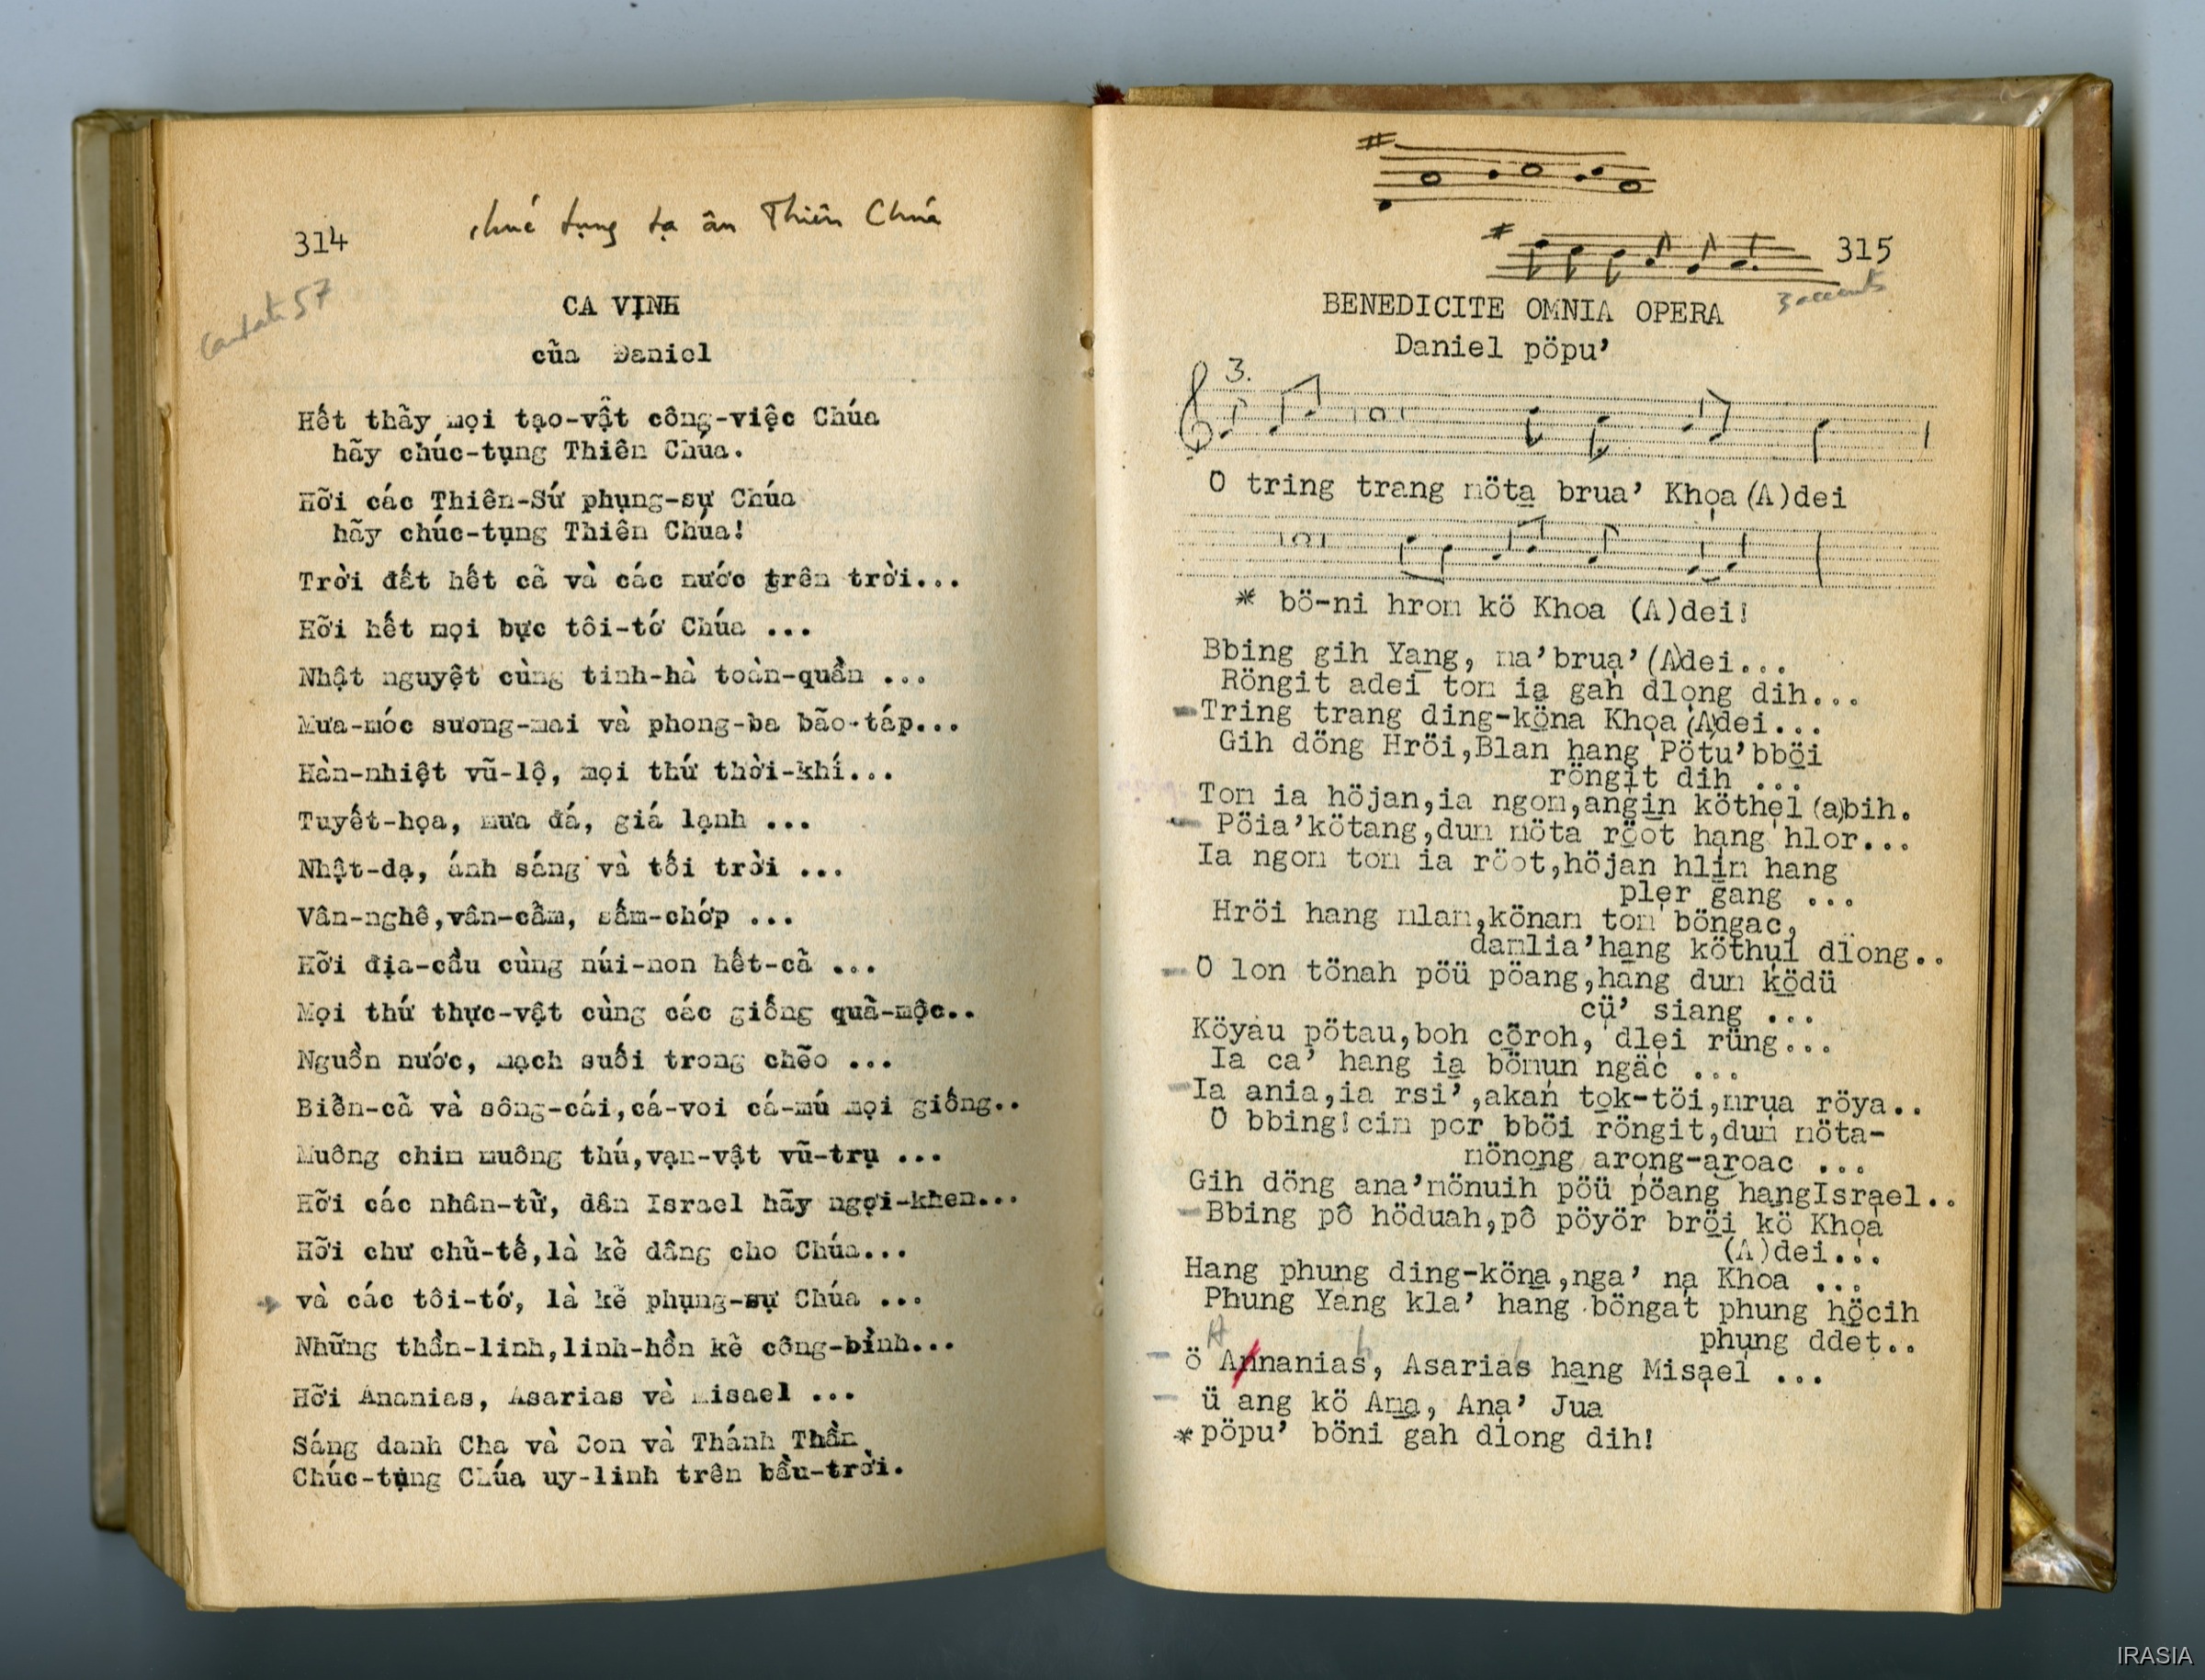 314
chúc tụng tạ ân Thiên Chúa
Cantate 57
CA VỊNH
cũa Daniel
Hết thãy mọi tạo-vật công-việc Chúa
hãy chúc-tụng Thiên Chúa.
Hỡi các Thiên-Sứ phụng-sự Chúa
hãy chúc-tụng Thiên Chúa!
Trời đất hết cã và các nước trên trời...
Hỡi hết mọi bực tôi-tớ Chúa ...
Nhật nguyệt cùng tinh-hà toàn-quần ...
Mưa-móc sương-mai và phong-ba bão-táp...
Hàn-nhiệt vũ-lộ, mọi thứ thời-khí...
Tuyết-họa, mưa đá, giá lạnh ...
Nhật-dạ, ánh sáng và tối trời ...
Vân-nghê,vân-cẩm, sấm-chớp ...
Hỡi địa-cầu cùng núi-non hết-cã ...
Mọi thứ thực-vật cùng các giống quã-mộc..
Nguồn nước, mạch suối trong chẽo ...
Biển-cã và sông-cái,cá-voi cá-mú mọi giống..
Muông chim muông thú,vạn-vật vũ-trụ ...
Hỡi các nhân-tử, dân Israel hãy ngợi-khen...
Hỡi chư chũ-tế,là kẽ dâng cho Chúa...
và các tôi-tớ, là kẽ phụng-sự Chúa ...
Những thần-linh,linh-hồn kẽ công-bình...
Hỡi Ananias, Asarias và Misael ...
Sáng danh Cha và Con và Thánh Thần
Chúc-tụng Chúa uy-linh trên bầu-trời.
315
3 accents
BENEDICITE OMNIA OPERA
Daniel pöpu’
3.
O tring trang möta brua’ Khoa (A)dei
* bö-ni hrom kö Khoa (A)dei!
Bbing gih Yang, ma’brua’(A)dei...
Röngit adei tom ia gah dlong dih...
Tring trang ding-köna Khoa (A)dei...
Gih döng Hröi,Blan hang Pötu’bböi
röngit dih ...
Tom ia höjan,ia ngom,angin köthel (a)bih.
Pöia’kötang,dum möta röot hang hlor...
Ia ngom tom ia röot,höjan hlim hang
pler gang ...
Hröi hang mlam,könam tom böngac,
damlia’hang köthul dlong..
O lon tönah pöü pöang,hang dum ködü
cü’ siang ...
Köyau pötau,boh cöroh, dlei rüng...
Ia ca’ hang ia bömun ngäc ...
Ia ania,ia rsi’,akan tok-töi,mrua röya..
O bbing!cim por bböi röngit,dum möta-
mönong arong-aroac ...
Gih döng ana’mönuih pöü pöang hangIsrael..
Bbing pô höduah,pô pöyör bröi kö Khoa
(A)dei...
Hang phung ding-köna,nga’ na Khoa ...
Phung Yang kla’ hang böngat phung höcih
phung ddet..
ö Annanias, Asarias hang Misael ...
ü ang kö Ama, Ana’ Jua
*pöpu’ böni gah dlong dih!
IRASIA